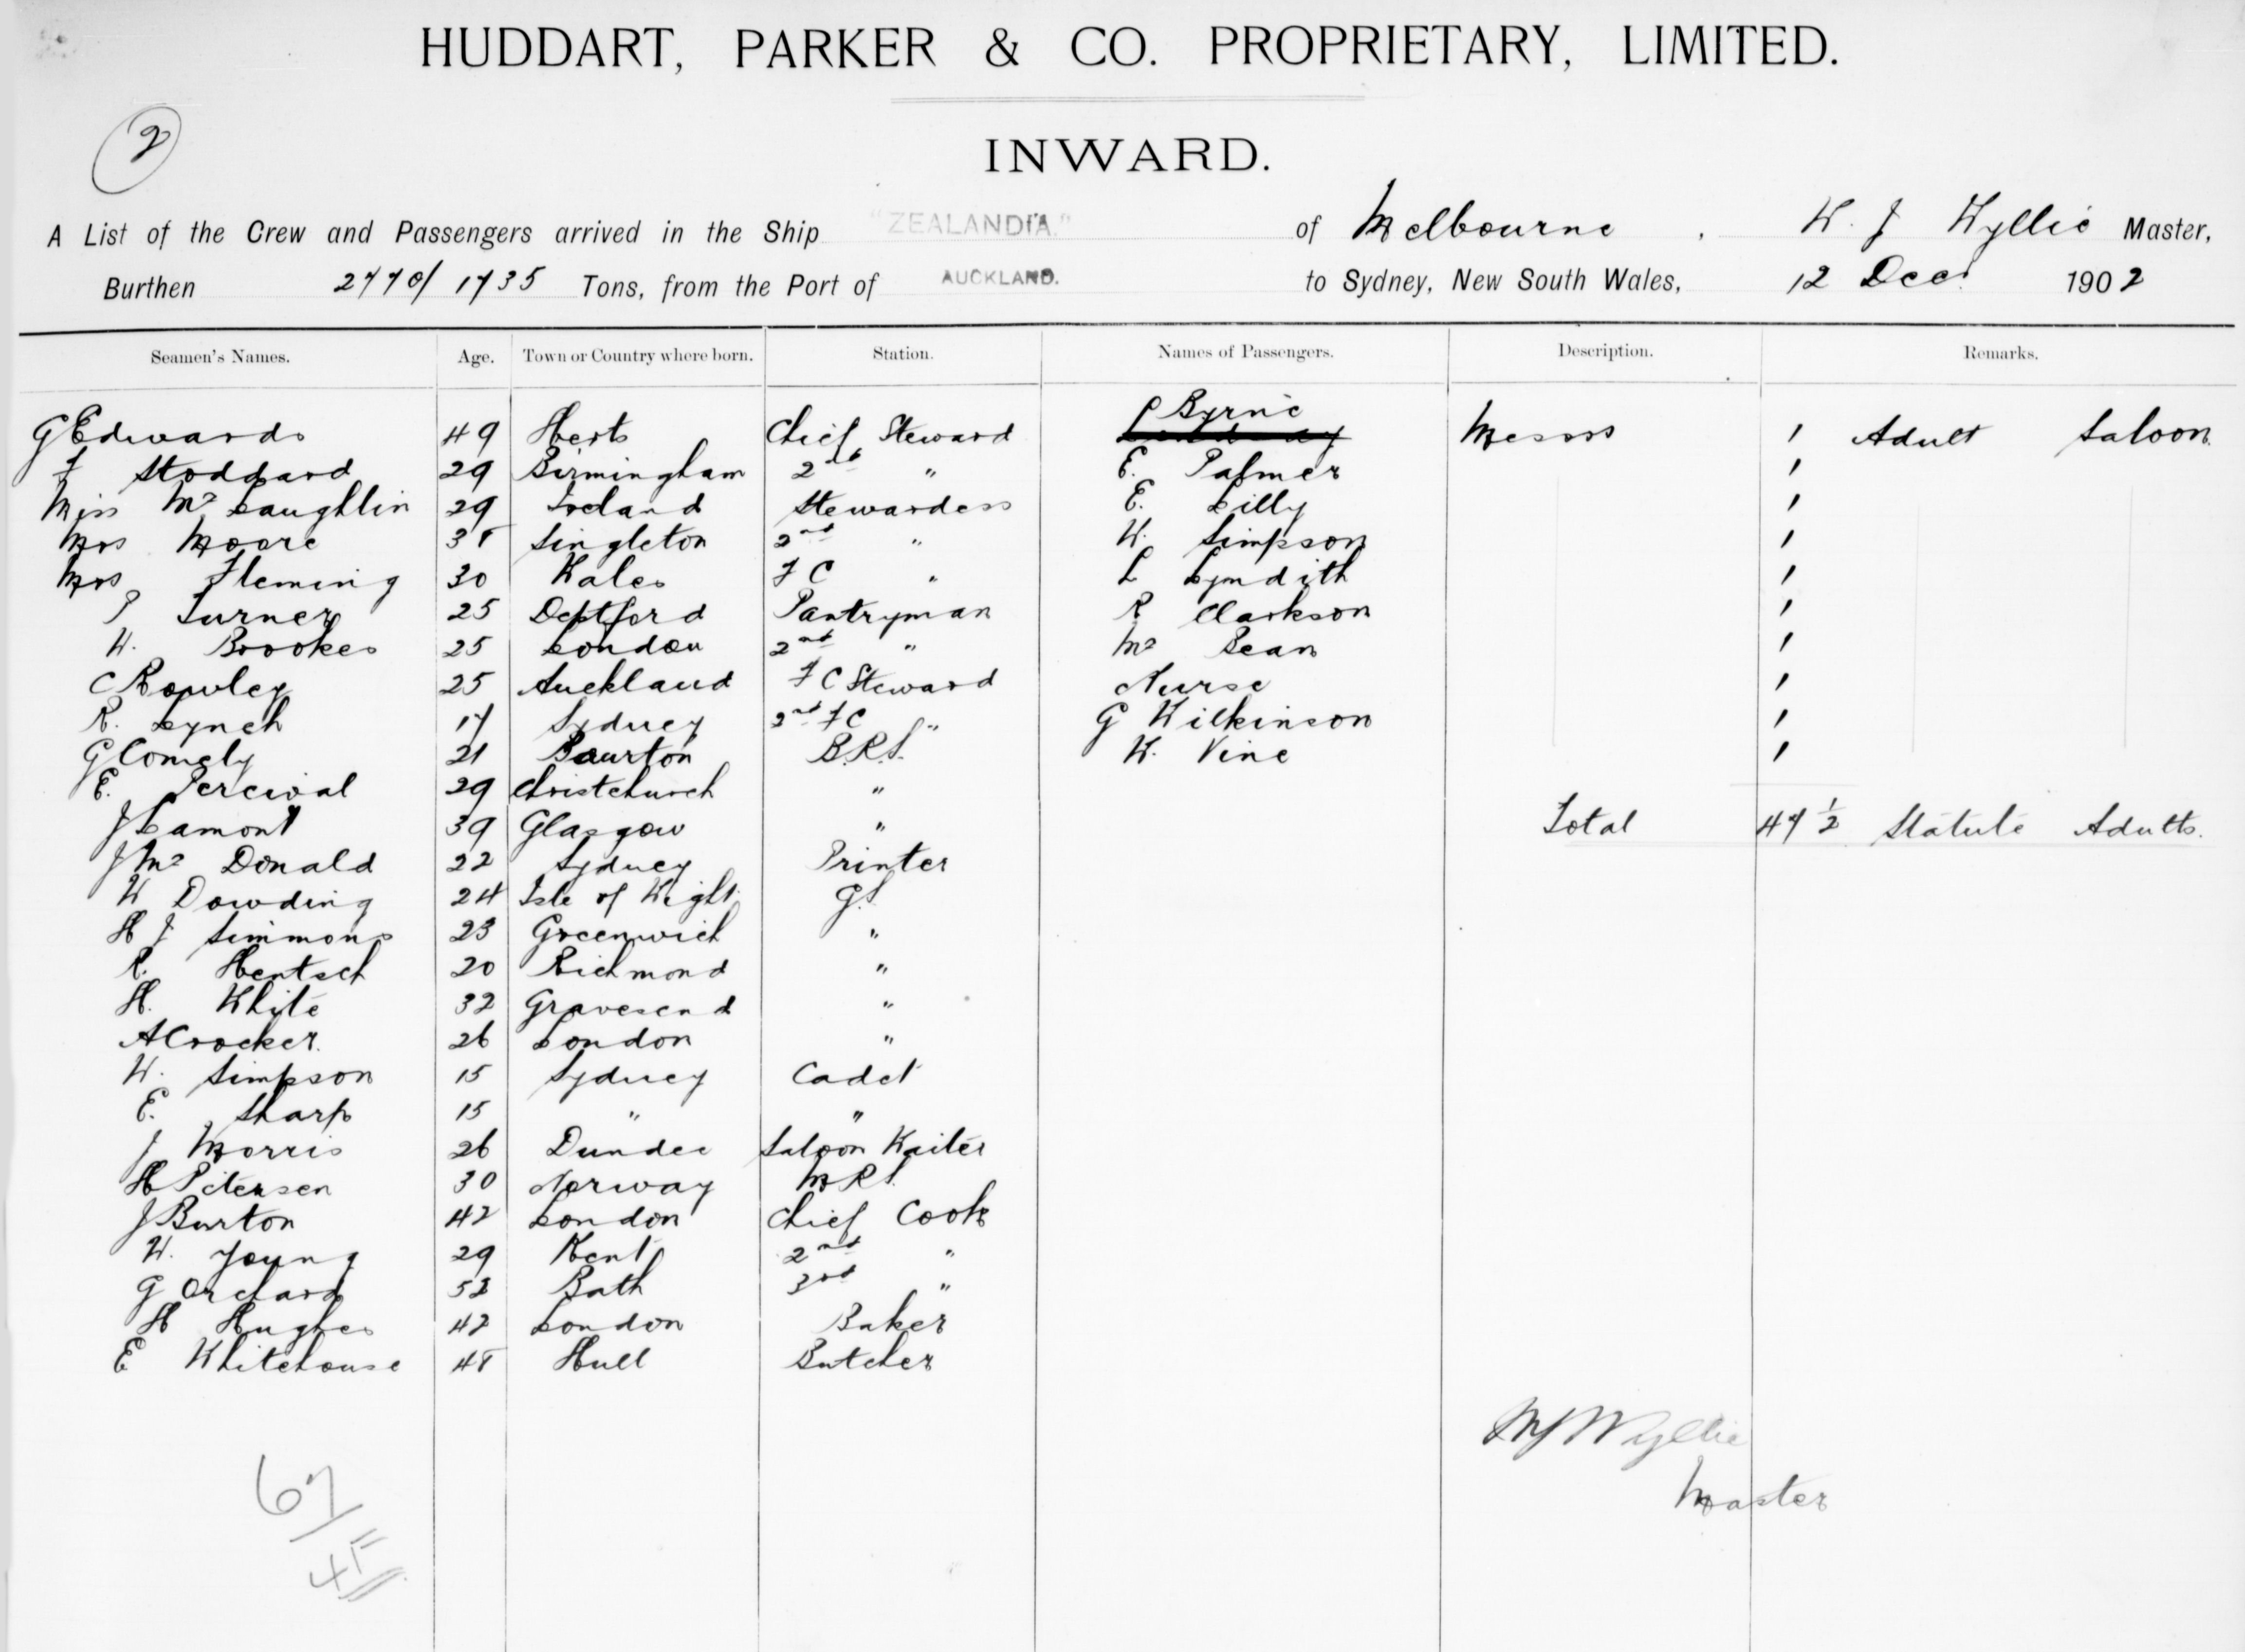 HUDDART, PARKER & CO. PROPRIETARY, LIMITED.
2
INWARD.
A List of the Crew and Passengers arrived in the Ship "ZEALANDIA." of Melbourne, W. J Wyllie Master,
Burthen 2770/1735 Tons, from the Port of AUCKLAND. to Sydney, New South Wales, 12 Dec. 1902
Seamen's Names. Age. Town or Country where born. Station. Names of Passengers. Description. Remarks.
G Edwards 49 Herts Chief Steward Byrne Messrs 1 Adult Saloon
F Stoddard 29 Birmingham 2nd " E. Palmer 1
Miss Mc Laughlin 29 Ireland Stewardess E. Lilly 1
Mrs Moore 38 Singleton 2nd " W. Simpson 1
Mrs Fleming 30 Wales F C " L Lyndith 1
P Turner 25 Deptford Pantryman R Clarkson 1
W. Brookes 25 London 2nd " Mc Bean 1
C Rowley 25 Auckland F C Steward Nurse 1
R. Lynch 17 Sydney 2nd F C " G Wilkinson 1
G Comely 21 Bourton B.R.S. W. Vine 1
E. Percival 29 Christchurch "
J Lamont 39 Glasgow " Total 47 1/2 Statute Adults.
J Mc Donald 22 Sydney Printer
W Dowding 24 Isle of Wight G.S
H J Simmons 23 Greenwich "
R. Hentsch 20 Richmond "
H. White 32 Gravesend "
A Crocker. 26 London "
W. Simpson 15 Sydney Cadet
E. Sharp 15 " "
J Morris 26 Dundee Saloon Waiter
H Petersen 30 Norway M R S.
J Burton 42 London Chief Cook
W. Young 29 Kent 2nd "
G Orchard 52 Bath 3rd "
H Hughes 42 London Baker
E Whitehouse 48 Hull Butcher
W J Wyllie
Master
67